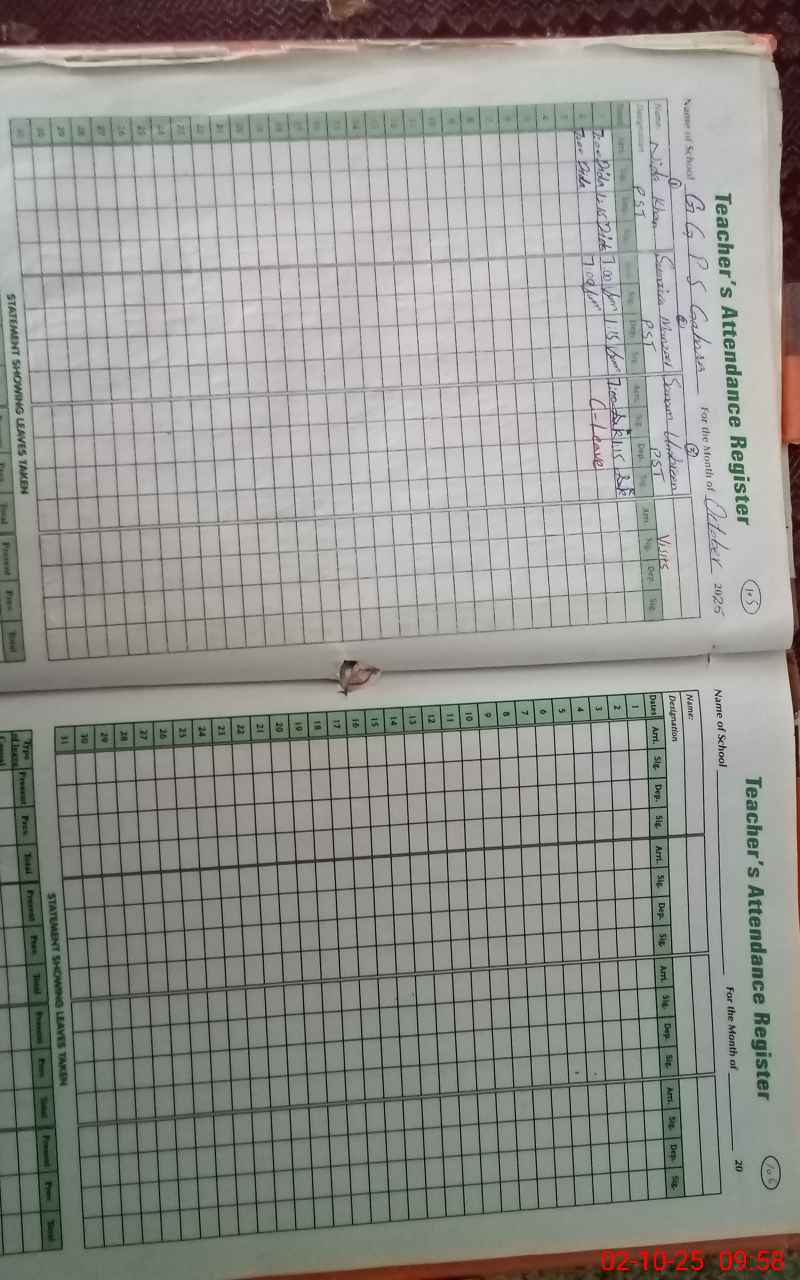 Teacher's Attendance Register
105
Name of School G G P S For the Month of October 2025
Name Nida Khan Sumaira Sanam
Designation PST PST PST Visits
Arr. Sig. Dep. Sig. Arr. Sig. Dep. Sig. Arr. Sig. Dep. Sig. Arr. Sig. Dep. Sig.
7:00 Nida 1:15 Nida 7:00 1:15 7:00 1:15
7:00 Nida 7:00 C-Leave
3
4
5
6
7
8
9
10
11
12
13
14
15
16
17
18
19
20
21
22
23
24
25
26
27
28
29
30
31
STATEMENT SHOWING LEAVES TAKEN
Prev. Total Present Prev. Total
Teacher's Attendance Register
106
Name of School For the Month of 20
Name:
Designation
Dates Arri. Sig. Dep. Sig. Arri. Sig. Dep. Sig. Arri. Sig. Dep. Sig. Arri. Sig. Dep. Sig.
1
2
3
4
5
6
7
8
9
10
11
12
13
14
15
16
17
18
19
20
21
22
23
24
25
26
27
28
29
30
31
STATEMENT SHOWING LEAVES TAKEN
Type of leave Present Prev. Total Present Prev. Total Present Prev. Total Present Prev. Total
Casual
02-10-25 09:58